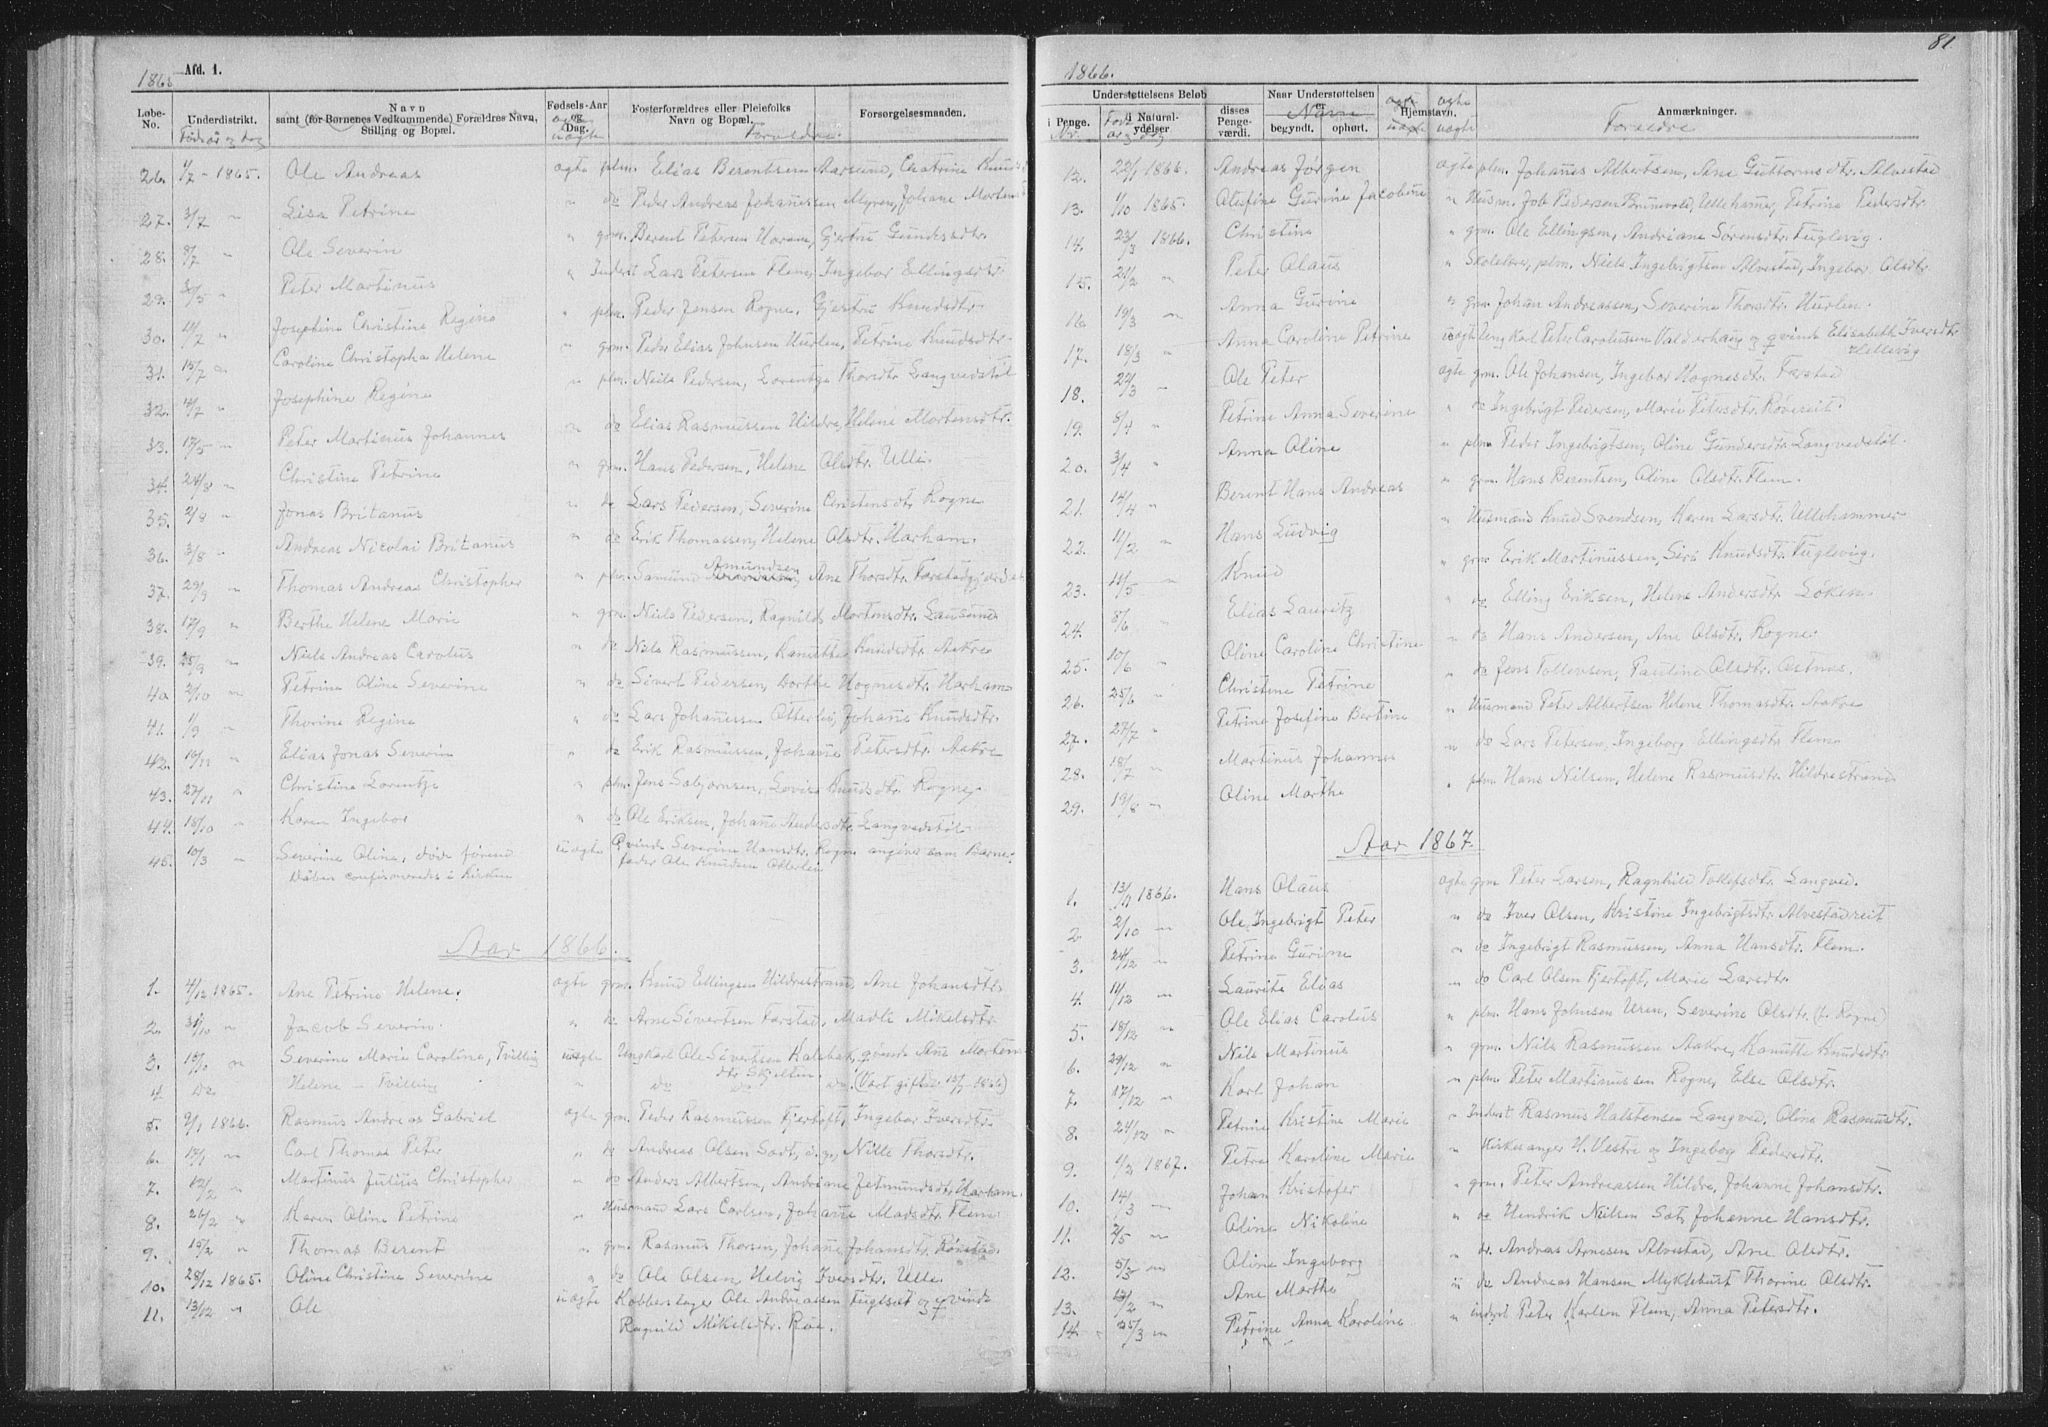 1865
Afd. 1.
Løbe-No.
Underdistrikt.
Fødår og dag
Navn
samt (for Børnenes Vedkommende) Forældres Navn,
Stilling og Bopæl.
Fødsels-Aar og Dag.
uægte
Fosterforældres eller Pleiefolks
Navn og Bopæl.
Forældre.
Forsorgelsesmaaden.
26. 1/7 - 1865. Ole Andreas ægte plm. Elias Berentsen Aarsund, Knuds
27. 3/7 " Lisa Petrine " do Peder Andreas Johannessen Myren, Johane Mortens
28. 9/7 " Ole Severin " grm. Berent Petersen Haram, Gjertru Gundersdtr.
29. 30/5 " Peter Martinus " Inderst Lars Petersen Flem, Ingebor Ellingsdtr.
30. 10/7 " Josephine Christine Regine " plm. Peder Jensen Rogne, Gjertru Knudsdtr.
31. 15/7 " Caroline Christopha Helene " grm. Peder Elias Johnsen Hurlen, Petrine Knudsdtr.
32. 4/7 " Josephine Regine " plm. Neils Pedersen, Lorentze Thorsdtr Langvedstøl
33. 17/5 " Peter Martinus Johannes " do Elias Rasmussen Hildre, Helene Mortensdtr.
34. 24/8 " Christine Petrine " grm. Hans Pedersen, Helene Olsdtr. Ulle.
35. 2/8 " Jonas Britanus " do Lars Pedersen, Severine Christensdtr Rogne
36. 3/8 " Andreas Nicolai Britanus " do Erik Thomassen, Helene Olsdtr. Harham.
Amundsen
37. 29/9 " Thomas Andreas Christopher " plm. Samund Ane Thorsdtr. Farstadgjerdet
38. 17/9 " Berthe Helene Marie " grm. Niels Pedersen, Ragnild Mortensdtr. Lausund
39. 25/9 " Niels Andreas Carolus " do Nils Rasmussen, Kanutte Knudsdtr. Aakre
40. 2/10 " Petrine Oline Severine " do Sivert Pedersen, Dorthe Hognesdtr. Harham
41. 1/9 " Thorine Regine " do Lars Johannessen Otterlei, Johane Knudsdtr.
42. 10/11 " Elias Jonas Severin " do Erik Rasmussen, Johane Petersdtr. Aakre
43. 27/11 " Christine Lorentze " plm. Jens Sabjørnsen, Lovise Knudsdtr. Rogne
44. 18/10 " Karen Ingebor " do Ole Eriksen, Johane Andersdtr. Langvedstøl
45. 10/3 " Severine Oline, døde førend uægte Qvinde Severine Hansdtr. Rogne angiver som Barne-
Dåben confirmeredes i Kirken fader Ole Knudsen Otterlei
Aar 1866.
1. 4/12 1865. Ane Petrine Helene. ægte grm. Knud Ellingsen Hildrestrand, Ane Johansdtr.
2. 31/10 " Jacob Severin. " do Arne Sivertsen Farstad, Madle Mikelsdtr
3. 15/10 " Severine Marie Caroline, Tvilling uægte Ungkarl Ole Sivertsen Kalshak, qvinde Ane Morten
dtr Skjelten.
4. do Helene - Tvilling " do do do. (Vart gifte 15/7 1866)
5. 9/1 1866. Rasmus Andreas Gabriel ægte grm. Peder Rasmussen Fjertoft, Ingebor Iversdtr.
6. 17/1 " Carl Thomas Peter " do Andreas Olsen Sadt, d.y., Nille Thorsdtr.
7. 12/2 " Martinus Julius Christopher " do Anders Albertsen, Andriane Jetmundsdtr. Harham
8. 26/2 " Karen Oline Petrine " Husmand Lars Carlsen, Johane Madsdtr. Flem
9. 15/2 " Thomas Berent " grm. Rasmus Thorsen, Johane Johansdtr. Rønstad
10. 28/12 1865. Oline Christine Severine " do Ole Olsen, Helvig Iversdtr. Ulle
11. 13/12 " Ole uægte Kobberslager Ole Andreassen Fuglset og qvinde
Ragnild Mikelsdtr. Røe.
81
1866.
Understøttelsens Beløb
i Penge.
Nr.
i Natural-ydelser
Født år og dag
disses Penge-værdi.
Naar Understøttelsen er
Navn
begyndt.
ophørt.
Hjemstavn.
ægte
uægte
ægte
uægte
Anmærkninger.
Foreldre
12. 22/1 1866. Andreas Jørgen ægte plm. Johanes Albertsen, Ane Guttormsdtr. Alvestad
13. 1/10 1865. Olufine Gurine Jacobine " Husm. Job Pedersen Brunevold, Ullehamer, Petrine Pedersdtr.
14. 23/3 1866. Christine " grm. Ole Ellingsen, Andriane Sørensdtr. Fuglevig.
15. 21/2 " Peter Olaus " Skolelærer, plm. Niels Ingebrigtsen Alvestad, Ingebor Olsdtr.
16 19/3 " Anna Gurine " grm. Johan Andreassen, Severine Thorsdtr. Hurlen.
17. 18/3 " Anna Caroline Petrine uægte Ung Karl Peter Carolussen Valderhaug og qvinde Elisabeth Iversdtr
Hellevig
18. 22/3 " Ole Peter ægte grm. Ole Johansen, Ingebor Hognesdtr. Farstad
19. 8/4 " Petrine Anna Severine " do Ingebrigt Pedersen, Marie Petersdtr. Røvereit.
20. 3/4 " Anna Oline " plm. Peder Ingebrigtsen, Oline Gundersdtr. Langvedstøl.
21. 14/4 " Berent Hans Andreas " grm. Hans Berentsen, Oline Olsdtr. Flem.
22. 11/2 " Hans Ludvig " Husmand Knud Svendsen, Karen Larsdtr. Ullehammer
23. 11/5 " Knud " grm. Erik Martinussen, Siri Knudsdtr. Fuglevig.
24. 8/6 " Elias Lauritz " do Elling Eriksen, Helene Andersdtr. Løken
25. 10/6 " Oline Caroline Christine " do Hans Andersen, Ane Olsdtr. Rogne.
26. 25/6 " Christine Petrine " do Jens Tollevsen, Pauline Olsdtr. Ostnes.
27. 27/7 " Petrine Josefine Bertine " Husmand Peter Albertsen Helene Thomasdtr. Aakre
28. 18/7 " Martinus Johannes " do Lars Petersen, Ingeborg Ellingsdtr. Flem.
29. 19/8 " Oline Marthe " plm. Hans Nilsen, Helene Rasmusdtr. Hildrestrand
Aar 1867.
1. 13/11 1866. Hans Olaus ægte grm Peter Larsen, Ragnhild Tollefsdtr. Langved.
2 2/10 " Ole Ingebrigt Peter " do Iver Olsen, Kristine Ingebrigtsdtr. Alvestadreit
3. 24/12 " Petrine Gurine " do Ingebrigt Rasmussen, Anna Hansdtr. Flem.
4. 11/12 " Laurits Elias " do Carl Olsen Fjertoft, Marie Larsdtr.
5. 18/12 " Ole Elias Carolus " plm. Hans Johnsen Uren, Severine Olsdtr. (f. Rogne)
6. 29/12 " Nils Martinus " grm. Nils Rasmussen Aakre, Kanutte Knudsdtr.
7. 17/12 " Karl Johan " plm. Peter Martinussen Rogne, Else Olsdtr.
8. 24/12 " Petrine Kristine Marie " Inderst Rasmus Halstensen Langved, Oline Rasmusdtr.
9. 1/2 1867. Petra Karoline Marie " Kirkesanger H. Vestre og Ingeborg Pedersdtr.
10. 14/1 " Johan Kristofer " grm. Peter Andreassen Hildre, Johanne Johansdtr.
11. 2/5 " Oline Nikoline " do Hendrik Nilsen Sat, Johanne Hansdtr.
12. 5/3 " Oline Ingeborg " do. Andreas Arnesen Alvestad, Ane Olsdtr.
13. 13/2 " Ane Marthe " do Andreas Hansen Myklebust Thorine Olsdtr.
14. 25/3 " Petrine Anna Karoline " inderst Peter Karlsen Flem, Anna Petersdtr.